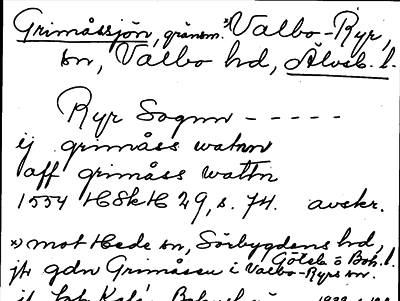 Grimåssjön, gränsm.ˣ⁾ Valbo-Ryr,
sn, Valbo hd, Älvsb. l.
Ryr Sognn - - - - -
ij grimåss watnn
aff grimåss wattn
1554 HSkH 29, s. 74. avskr.
x) mot Hede sn, Sörbygdens hd,
Götebs o Boh. l.
jfr gdn Grimåsen i Valbo-Ryrs sn.